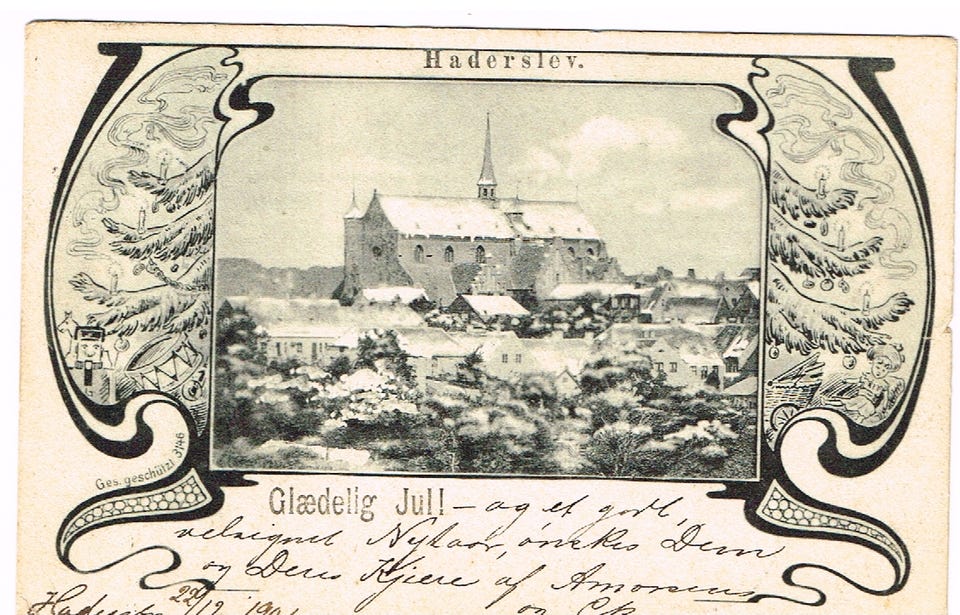 Haderslev.
Ges. geschützt 3746
Glædelig Jul! — og et godt,
velsignet Nytaar, ønskes Dem
og Deres Kjære af
Haderslev 22/12 190
og